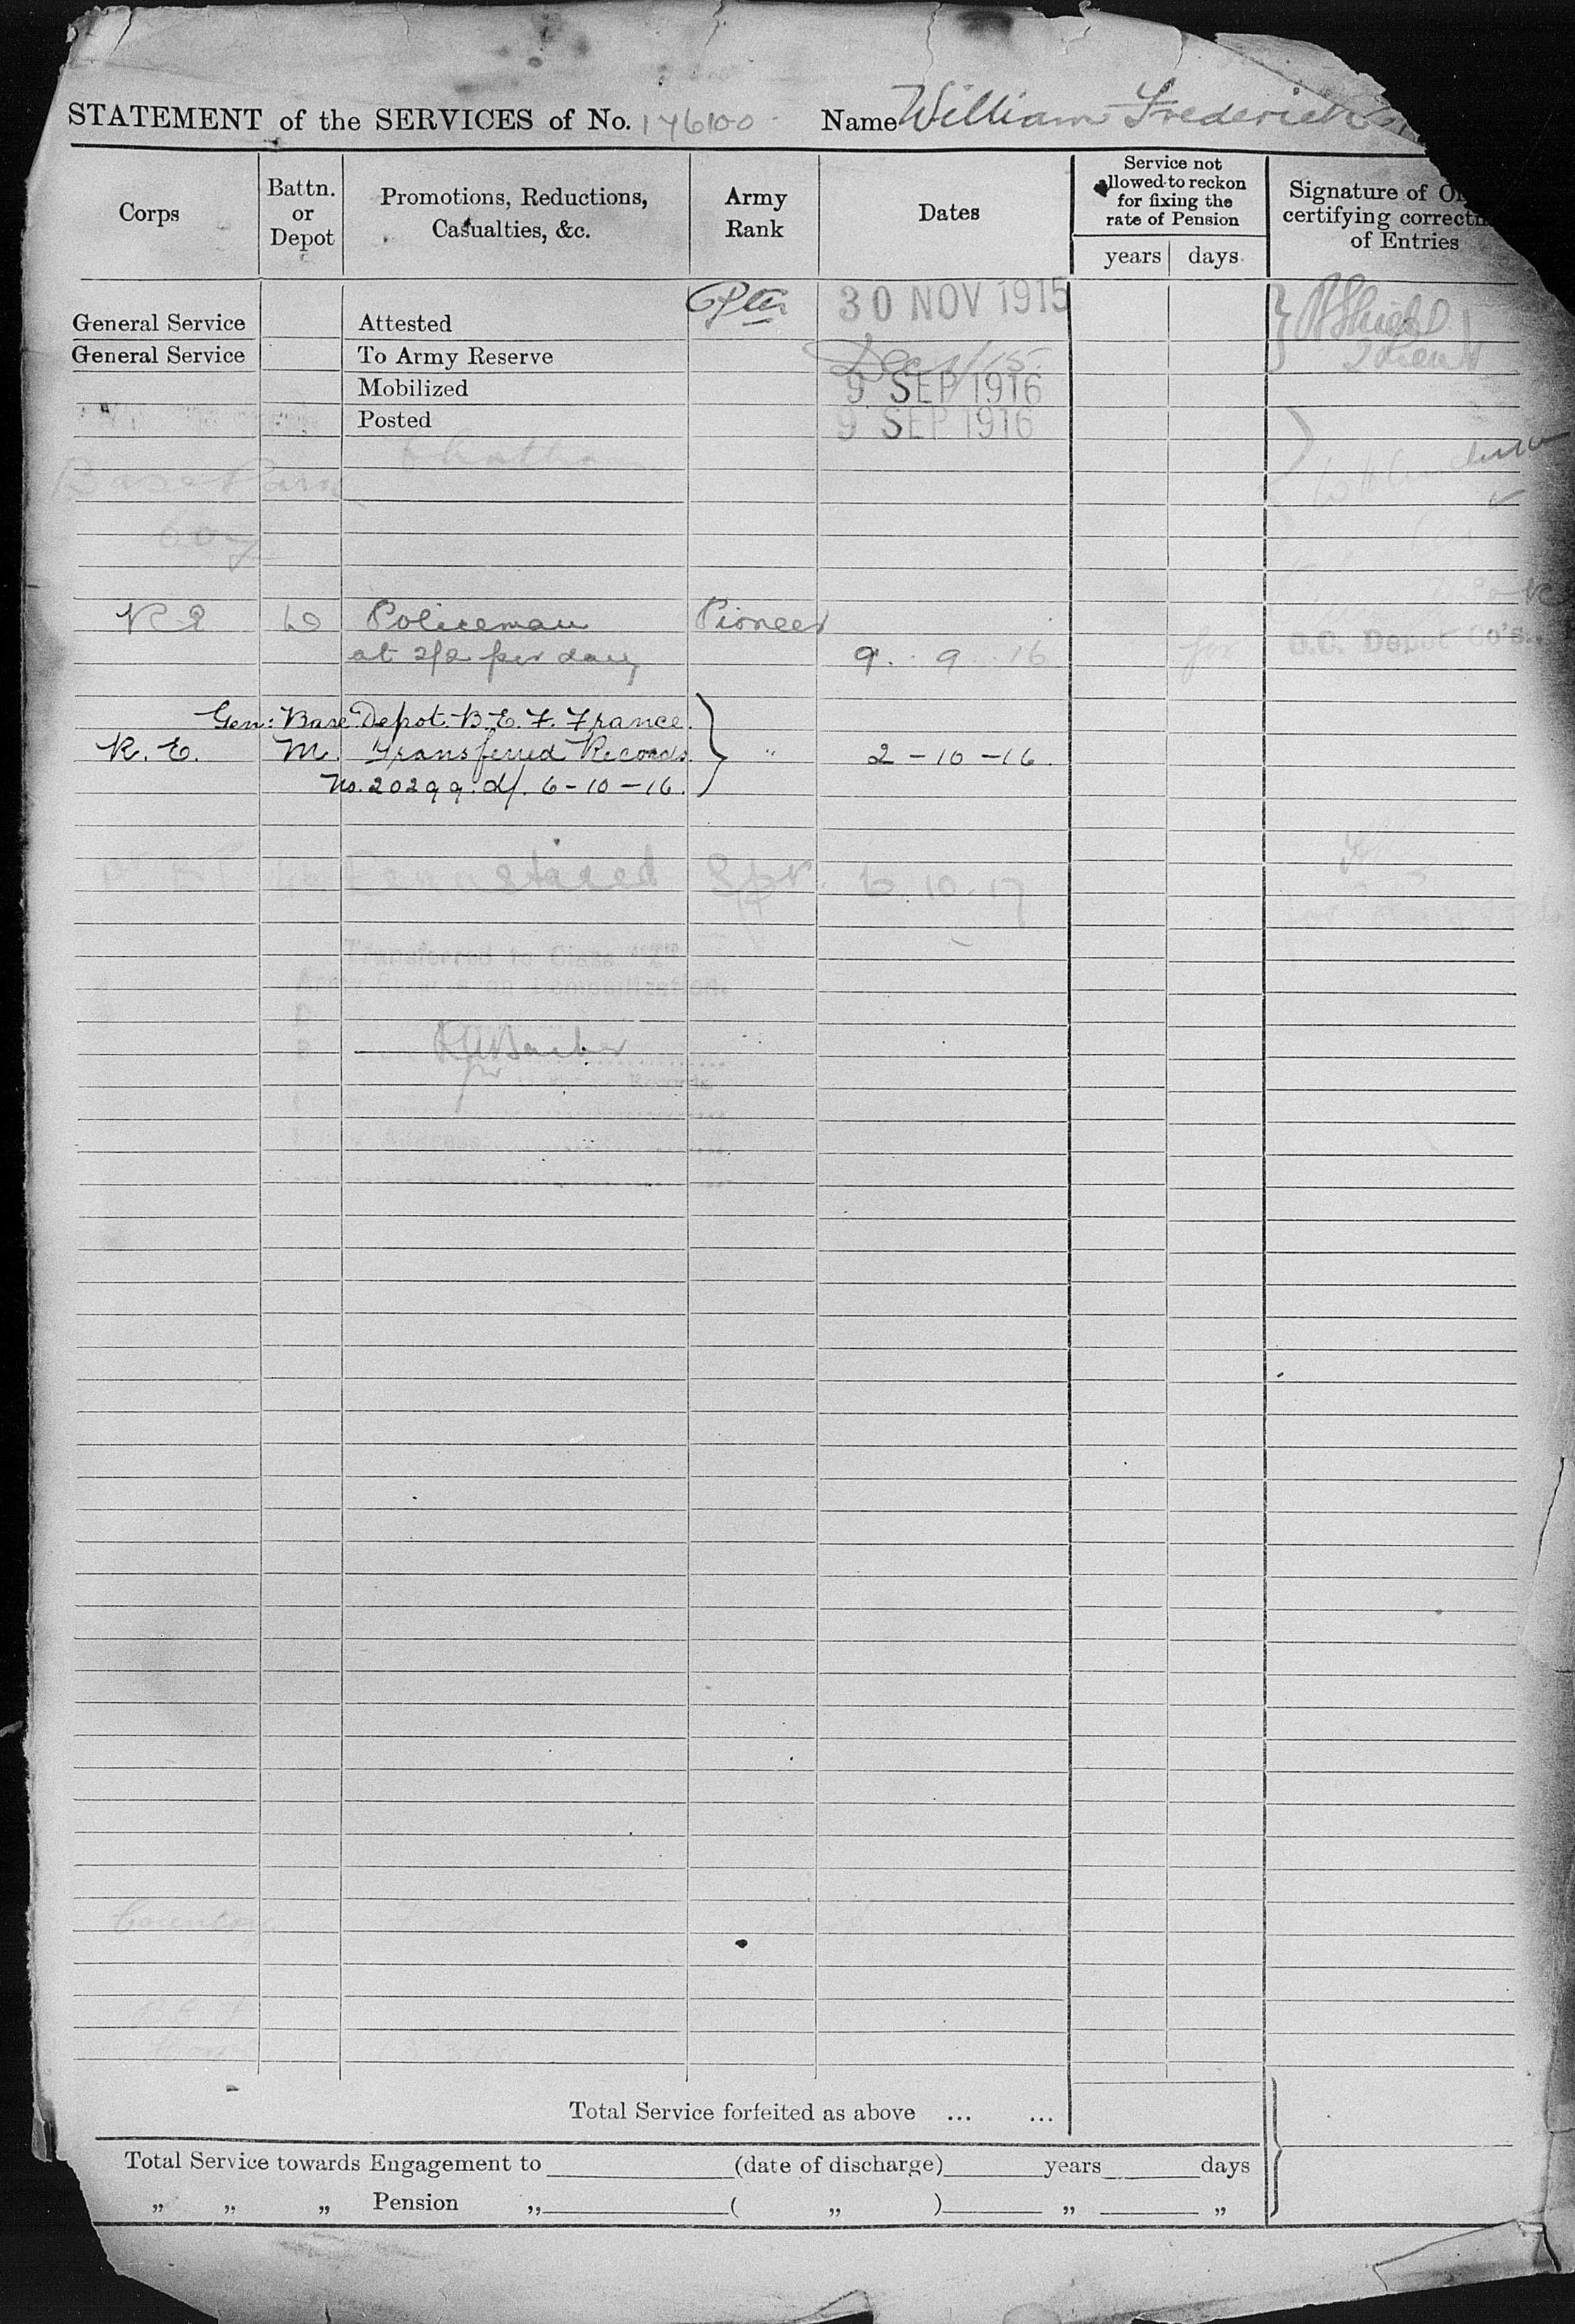 STATEMENT of the SERVICES of No. 176100 Name William Frederick
Corps
Battn. or Depot
Promotions, Reductions, Casualties, &c.
Army Rank
Dates
Service not allowed to reckon for fixing the rate of Pension
years days
Signature of certifying of Entries
General Service Attested Pte 30 NOV 1915
General Service To Army Reserve Dec 1/15
Mobilized 9 SEP 1916
2 Lieut
Posted 9 SEP 1916
Chatham
Base Park
Coy
R E Policeman Pioneer
at 2/2 per day 9 . 9 16 for O.C. Depot Co's.
Gen: Base Depot B.E.F. France.
R. E. M. Transferred Records " 2 - 10 - 16.
No. 20299. d/. 6 - 10 - 16.
Remustered Spr. 6.10.17
Transferred to Class "Z"
Army Reserve on Demobilization.
for Records
Address
Total Service forfeited as above ... ...
Total Service towards Engagement to (date of discharge) years days
„ „ „ Pension „ ( „ ) „ „